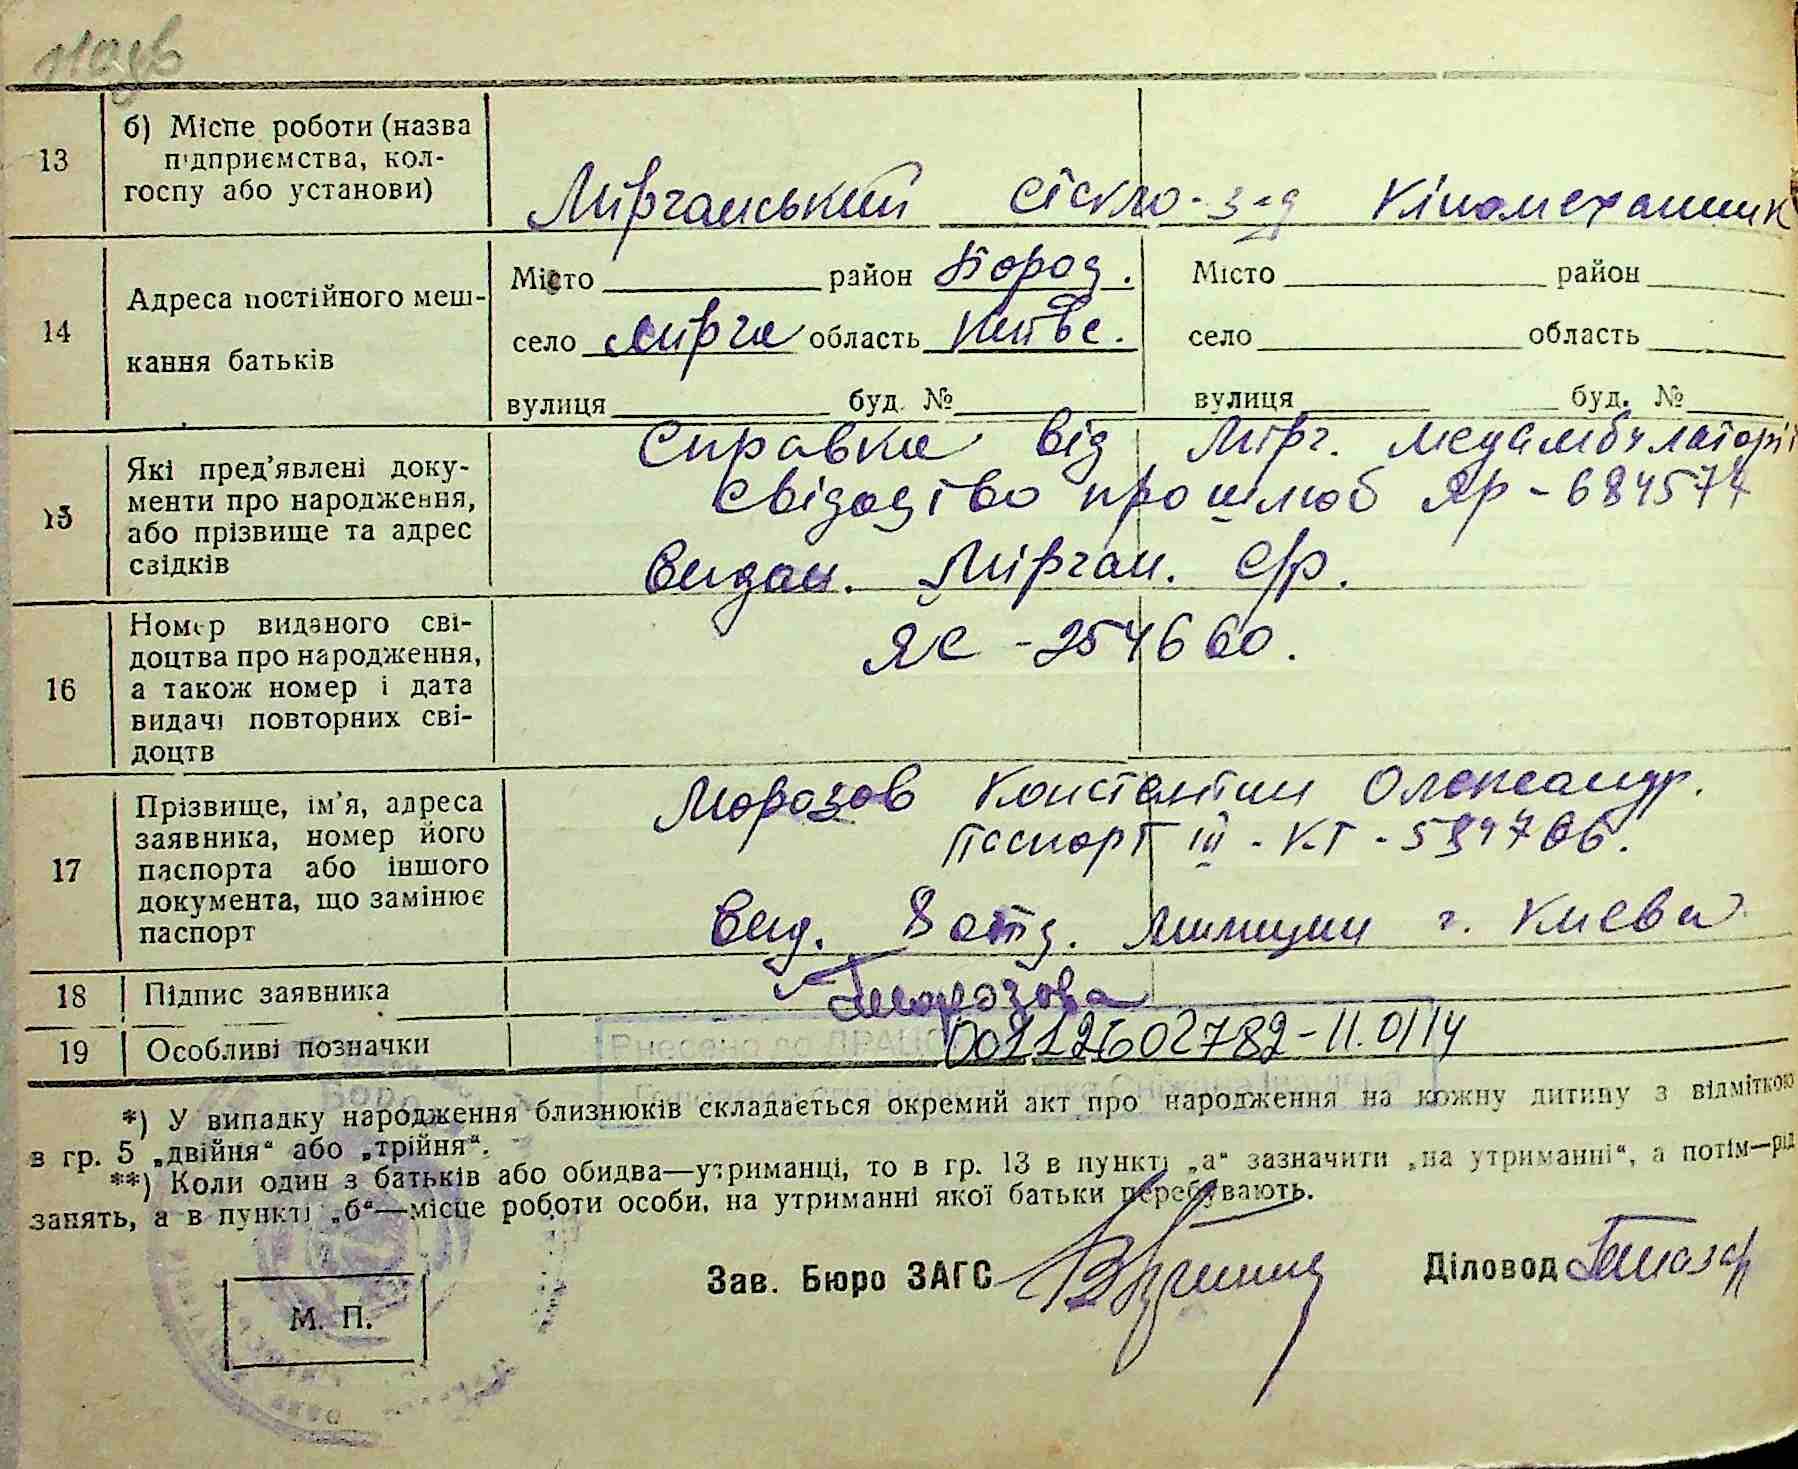 13
б) Місце роботи (назва
підприємства, кол-
госпу або установи)
Мирчанський сіскло-з-д Кіномеханник
14
Адреса постійного меш-
кання батьків
Місто район Бород. Місто район
село Мирча область Київс. село область
вулиця буд. № вулиця буд. №
15
Які пред'явлені доку-
менти про народження,
або прізвище та адрес
свідків
Справка від Мирч. медамбулаторії
свідоцтво про шлюб ЯР - 684574
видан. Мірчан. с/р.
16
Номер виданого сві-
доцтва про народження,
а також номер і дата
видачі повторних сві-
доцтв
ЯС - 254660.
17
Прізвище, ім'я, адреса
заявника, номер його
паспорта або іншого
документа, що замінює
паспорт
Морозов Констентин Олександр.
паспорт III - КТ - 594706.
вид. 8 отд. милиции г. Киева
18 Підпис заявника
Морозова
19 Особливі позначки
00112602782-11.0114
Внесено до ДРАЦС
*) У випадку народження близнюків складається окремий акт про народження на кожну дитину з відміткою
в гр. 5 „двійня“ або „трійня“.
**) Коли один з батьків або обидва—утриманці, то в гр. 13 в пункті „а“ зазначити „на утриманні“, а потім—рід
занять, а в пункті „б“—місце роботи особи, на утриманні якої батьки перебувають.
Зав. Бюро ЗАГС Діловод
М. П.